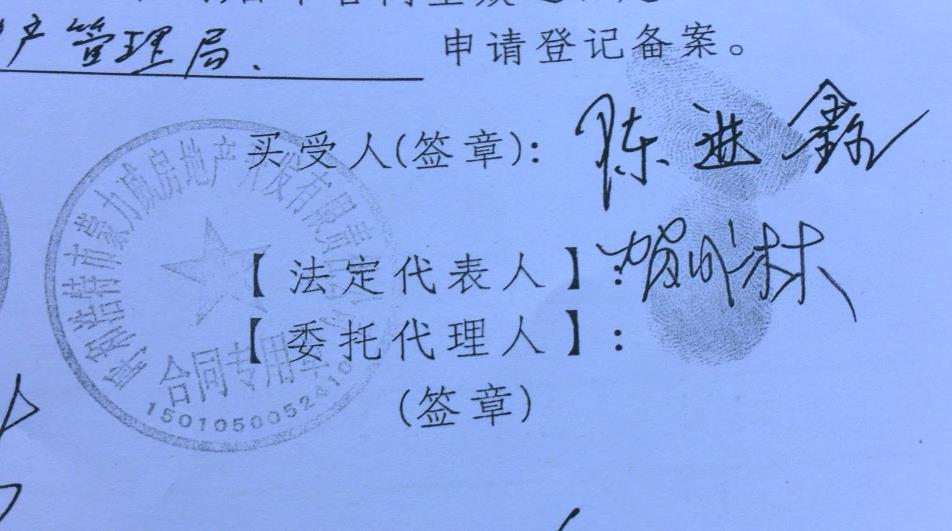 产管理局、 申请登记备案。
买受人(签章): 陈进鑫
【 法定代表人 】:
【 委托代理人 】:
(签章)
呼和浩特市蒙力威房地产开发有限责任公司
合同专用章
1501050052410